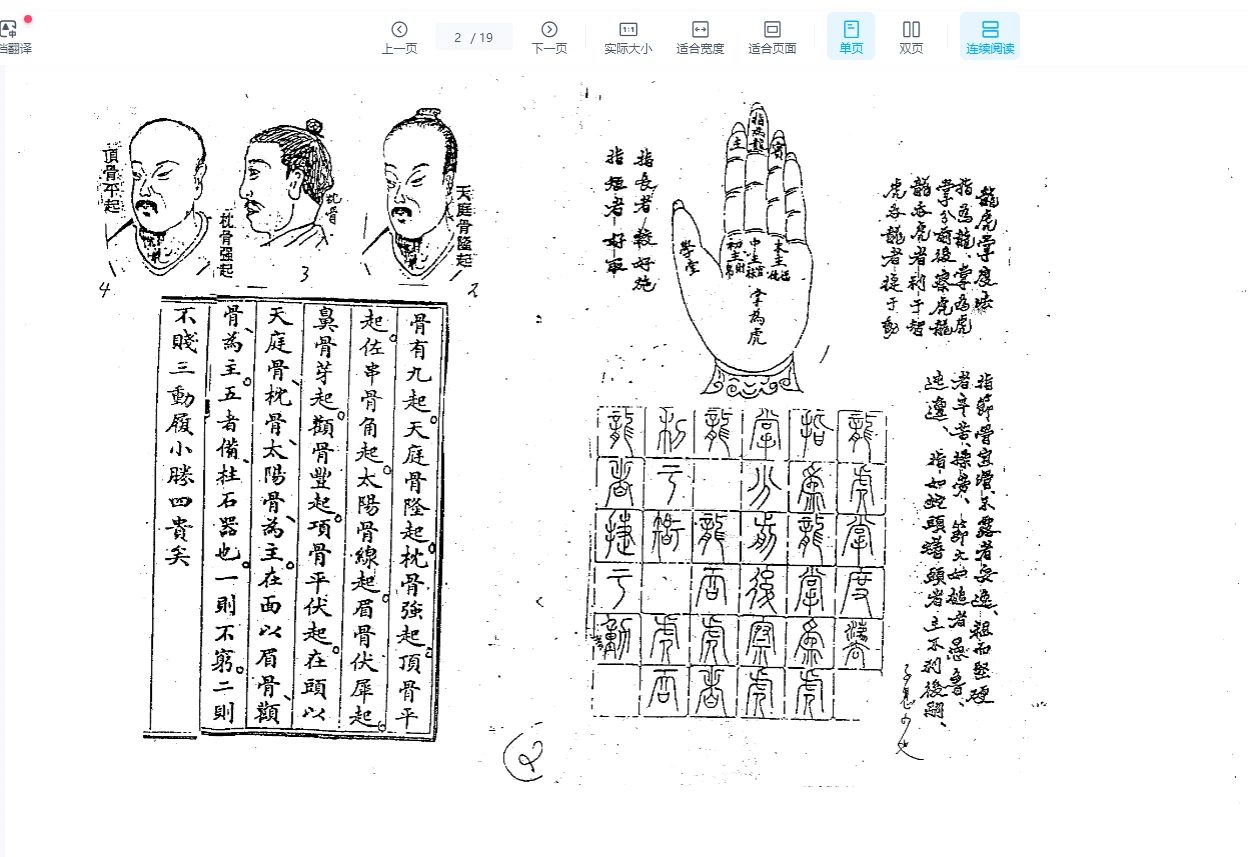 档翻译
上一页
2 / 19
下一页
实际大小
适合宽度
适合页面
单页
双页
连续阅读
天庭骨隆起
2
枕骨
枕骨强起
3
頂骨平起
4
骨有九起。天庭骨隆起。枕骨強起。頂骨平
起。佐串骨角起。太陽骨線起。眉骨伏犀起。
鼻骨芽起。顴骨豐起。項骨平伏起。在頭以
天庭骨、枕骨、太陽骨、為主。在面以眉骨、顴
骨、為主。五者備、柱石器也。一則不窮。二則
不賤三動履小勝四貴矣
龍虎掌度法
指為龍、掌為虎
掌分前後察虎龍
龍吞虎者利于智
虎吞龍者捷于動
指長者較好施
指短者好取
主
指為龍
賓
學堂
初主
中主
末主
掌為虎
指節骨宜滑不露者安逸、粗而堅硬
者辛苦、
指如蛇頭
龍虎掌度法
指為龍掌為虎
掌分前後察虎
龍龍吞虎者
利于智虎吞
龍者捷于動
2